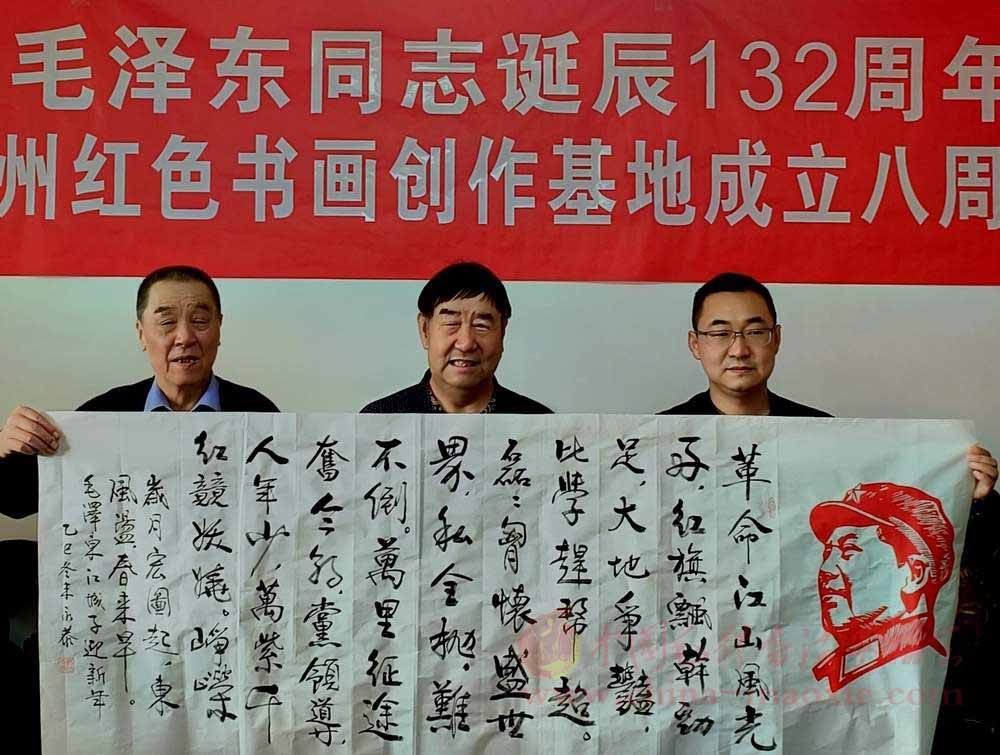 毛泽东同志诞辰132周年
州红色书画创作基地成立八周
革命江山風光
好,红旗飄,幹劲
足,大地争艷,
比學趕幫超。
磊〻胸懷盛世
界,私全拋,難
不倒。萬里征途
奮今朝,黨領導,
人年少,萬紫千
红競妖嬈。崢嶸
歲月宏圖起,東
風盪,春来早。
毛澤東江城子迎新年
乙巳冬末永恭